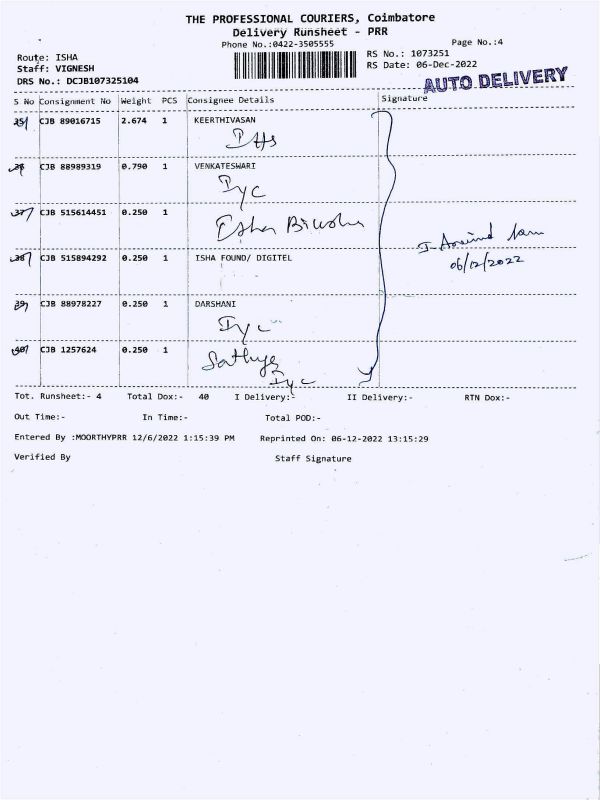 THE PROFESSIONAL COURIERS, Coimbatore
Delivery Runsheet - PRR
Phone No.:0422-3505555 Page No.:4
Route: ISHA RS No.: 1073251
Staff: VIGNESH RS Date: 06-Dec-2022
DRS No.: DCJB107325104 AUTO DELIVERY
S No Consignment No Weight PCS Consignee Details Signature
35 CJB 89016715 2.674 1 KEERTHIVASAN
36 CJB 88989319 0.790 1 VENKATESWARI
Iyc
37 CJB 515614451 0.250 1
38 CJB 515894292 0.250 1 ISHA FOUND/ DIGITEL
06/12/2022
39 CJB 88978227 0.250 1 DARSHANI
Iyc
40 CJB 1257624 0.250 1 Sathya
Iyc
Tot. Runsheet:- 4 Total Dox:- 40 I Delivery:- II Delivery:- RTN Dox:-
Out Time:- In Time:- Total POD:-
Entered By :MOORTHYPRR 12/6/2022 1:15:39 PM Reprinted On: 06-12-2022 13:15:29
Verified By Staff Signature